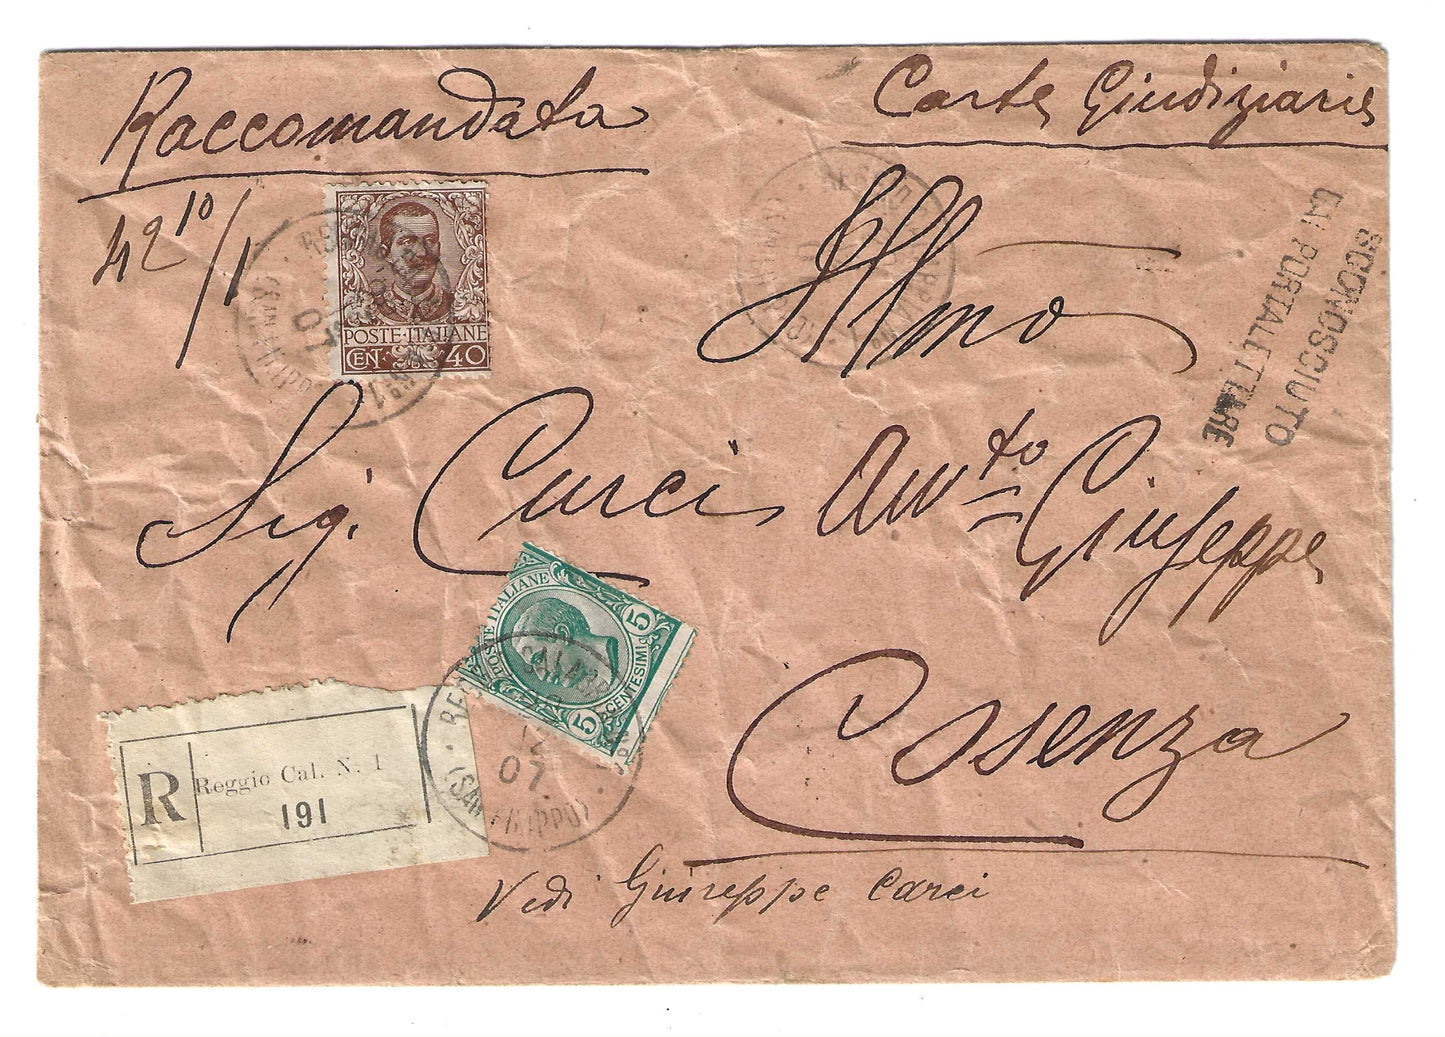 Raccomandata
Carte Giudiziarie
42 10/1
Illmo
SCONOSCIUTO
DAI PORTALETTERE
POSTE·ITALIANE
CEN. 40
Sig. Curci Avv.to Giuseppe
POSTE ITALIANE
5 CENTESIMI 5
Cosenza
R
Reggio Cal. N. 1
191
REGGIO CALABRIA
07
(SAN FILIPPO)
Vedi Giuseppe Carci